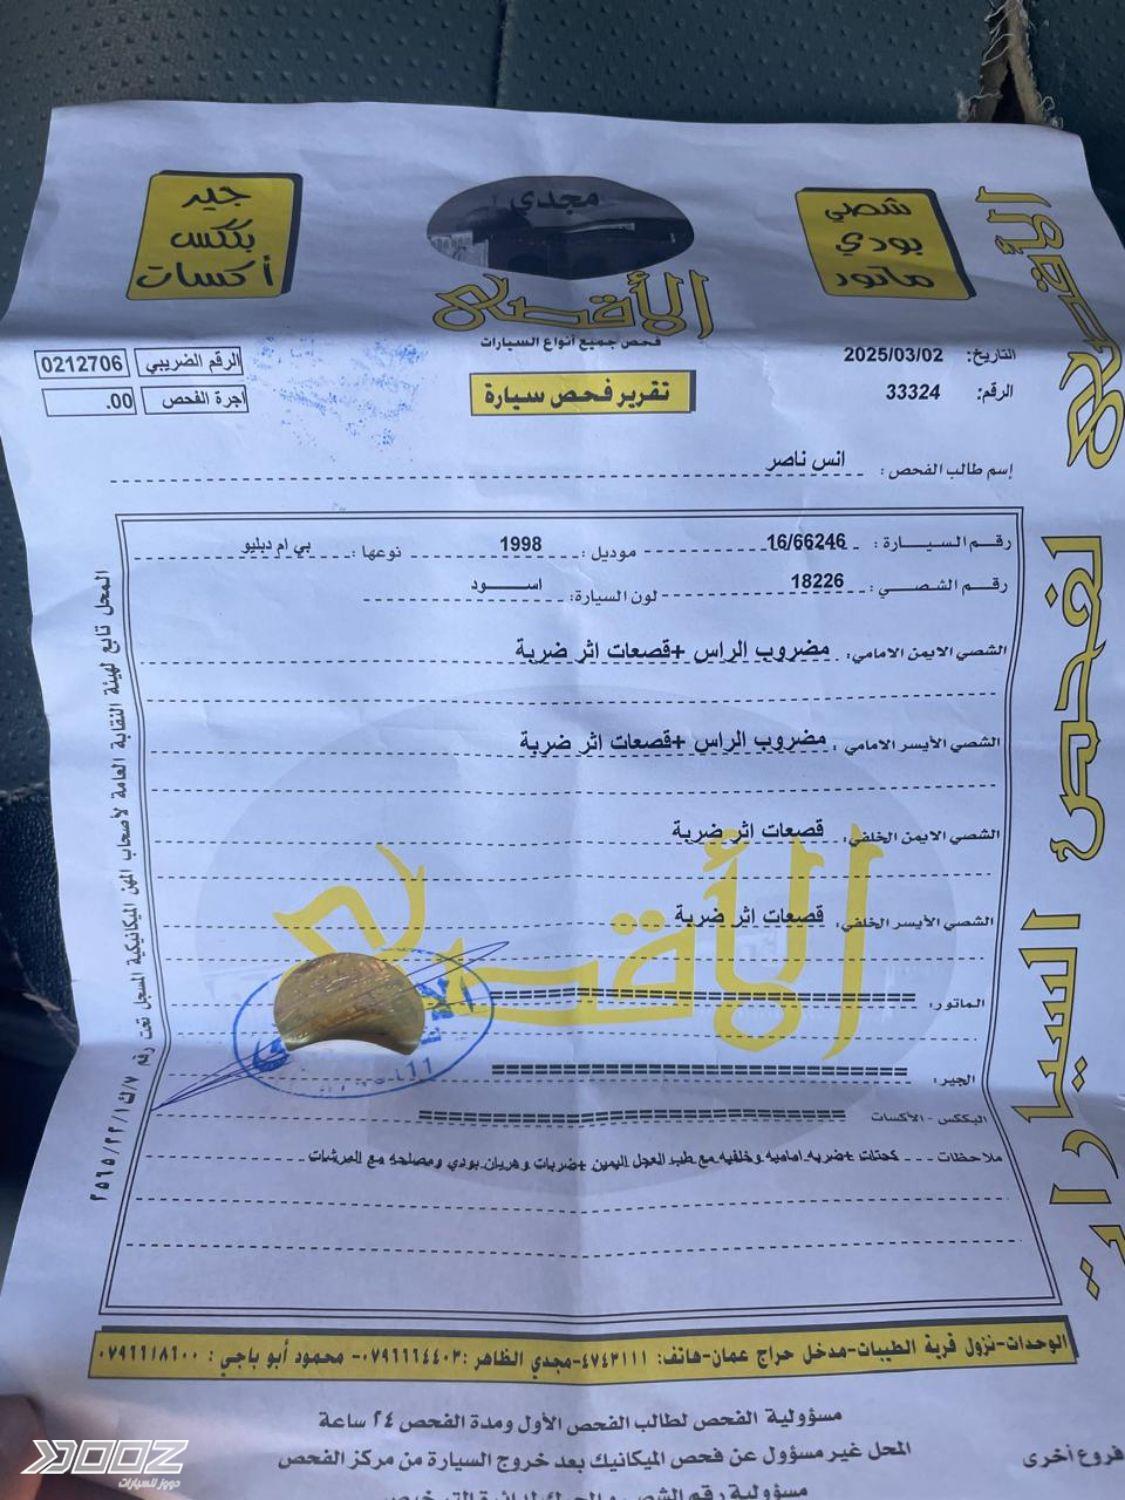 جير
بكس
أكسات
مجدي
الأقصى
فحص جميع أنواع السيارات
شصي
بودي
ماتور
الأقصى لفحص السيارات
التاريخ: 2025/03/02
الرقم: 33324
الرقم الضريبي 0212706
اجرة الفحص 00.
تقرير فحص سيارة
إسم طالب الفحص: انس ناصر
رقم السيارة: 16/66246 موديل: 1998 نوعها: بي ام دبليو
رقم الشصي: 18226 لون السيارة: اسود
الشصي الايمن الامامي: مضروب الراس +قصعات اثر ضربة
الشصي الأيسر الامامي: مضروب الراس +قصعات اثر ضربة
الشصي الايمن الخلفي: قصعات اثر ضربة
الشصي الأيسر الخلفي: قصعات اثر ضربة
الأقصى
الماتور: ====================
الجير: ====================
البكس - الأكسات ====================
ملاحظات كحتات +ضربه اماميه وخلفيه مع طب العجل اليمين +ضربات وهريان بودي ومصلحه مع المرشات
المحل تابع لهيئة النقابة العامة لأصحاب المهن الميكانيكية المسجل تحت رقم
الوحدات-نزول قرية الطيبات-مدخل حراج عمان-هاتف: ٤٧٤٣١١١-مجدي الظاهر :٠٧٩٦٦٦٤٤٠٣- محمود أبو باجي : ٠٧٩٦٦١٨٦٠٠
مسؤولية الفحص لطالب الفحص الأول ومدة الفحص ٢٤ ساعة
المحل غير مسؤول عن فحص الميكانيك بعد خروج السيارة من مركز الفحص
فروع أخرى
مسؤولية رقم الشصي
DOOZ
دووز للسيارات